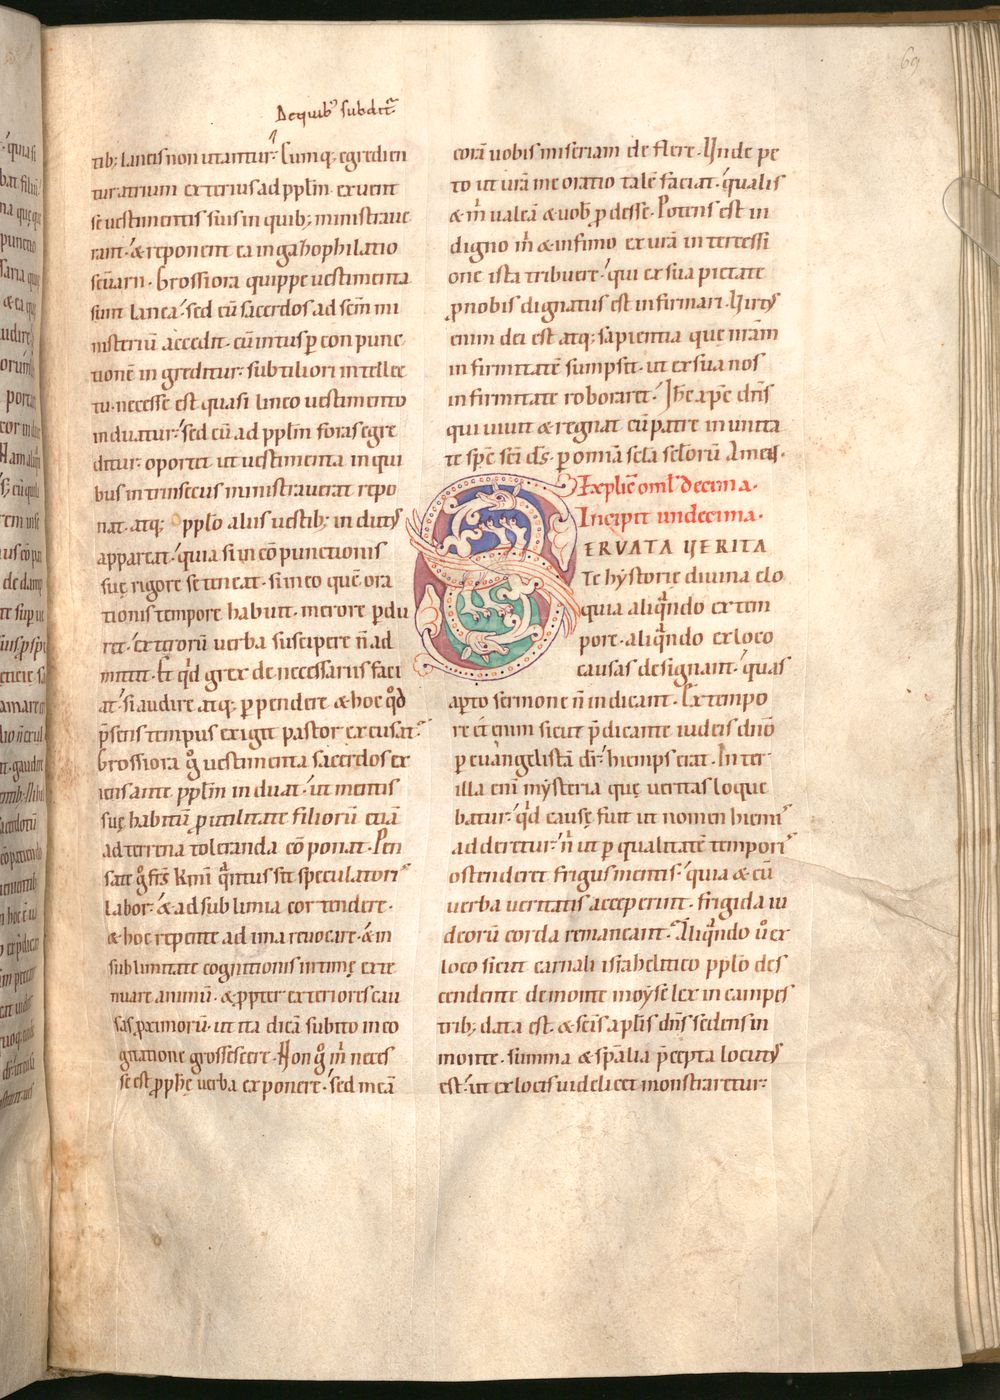 69
De quib' subdit̄
tib; laneis non utantur. Cumq; egredien
tur atrium exterius ad ppl̄m exuent
se uestimentis suis in quib; ministraue
rant. & reponent ea in gazophilatio
sc̄uarii. Grossiora quippe uestimenta
sunt lanea. sed cū sacerdos ad sc̄m mi
nisteriū accedit. cū intus p conpunc
tionē ingreditur. subtiliori intellec
tu. necesse est quasi lineo uestimento
induatur. sed cū ad ppl̄m foras egre
ditur. oportet ut uestimenta in qui
bus intrinsecus ministrauerat repo
nat. atq; pplo aliis uestib; indutꝰ
appareat. quia si in cōpunctionis
suę rigore se teneat. si in eo quē ora
tionis tempore habuit. merore pdu
ret. exteriorū uerba suscipere n̄ ad
mittit. Et qd grex de necessariis faci
at. si audire atq; perpendere & hoc qd
p̄sens tempus exigit pastor excusat.
Grossiora g° uestimenta sacerdos ex
iens ante ppl̄m induat. ut mentis
suę habitū p utilitate filiorū etiā
ad terrena toleranda cōponat. Pen
sate g° frs̄ kmī qntus sit speculatoris
labor. & ad sublimia cor tendere.
& hoc repente ad ima reuocare. & in
sublimitate cognitionis intimę exte
nuare animū. & ppter exteriores cau
sas pximorū. ut ita dicā subito in co
gitatione grossescere. Non g° m̄ neces
se est pphę uerba exponere. sed meā
corā uobis miseriam deflere. Unde pe
to ut urā me oratio talē faciat. qualis
& m̄ ualeā & uob pdesse. Potens est in
digno m̄ & infimo ex urā intercessi
one ista tribuere. qui ex sua pietate
p nobis dignatus est infirmari. Uirtꝰ
enim dei est atq; sapientia que nrām
infirmitatē sumpsit. ut ex sua nos
infirmitate roboraret. Ihc xpc dn̄s
qui uiuit & regnat cū patre in unita
te sp̄c sc̄i ds̄. p omīa sc̄la sc̄lorū Amen.
Explic̄ oml' decima.
Incipit undecima.
SERVATA VERITA
Te hystorię diuina elo
quia aliqndo ex tem
pore. aliqndo ex loco
causas designant. quas
apto sermone n̄ indicant. Ex tempo
re et enim sicut p̄dicante iudeis dn̄o
p euangelistā dr̄. hiemps erat. Inter
illa enī mysteria quę ueritas loque
batur. qd causę fuit ut nomen hiemis
adderetur. n̄ ut p qualitatē temporis
ostenderet frigus mentis. quia & cū
uerba ueritatis acceperint. frigida iu
deorū corda remaneant. Aliqndo ū ex
loco sicut carnali israhelitico pplo des
cendente de monte moyse lex in campes
trib; data est. & sc̄is aplis dn̄s sedens in
monte. summa & sp̄alia p̄cepta locutꝰ
est. ut ex locis uidelicet monstraretur.